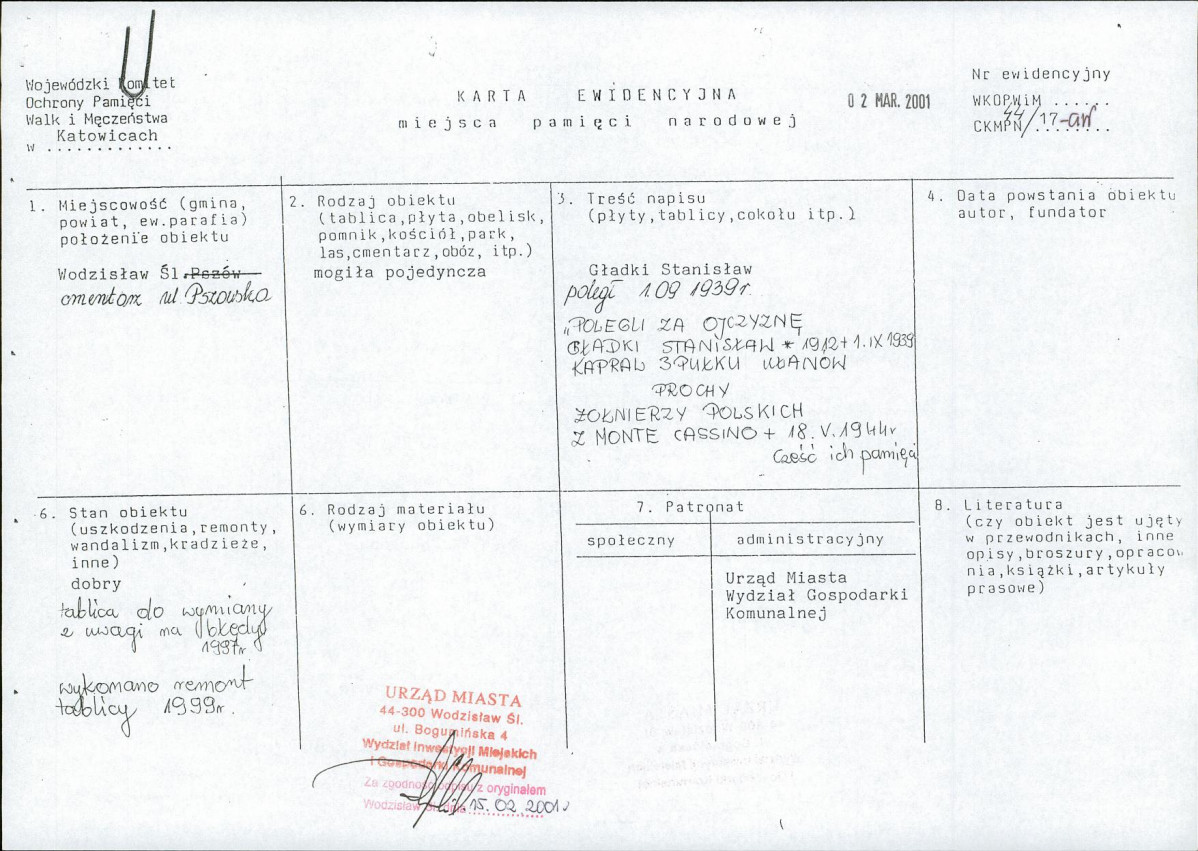 Wojewódzki Komitet
Ochrony Pamięci
Walk i Męczeństwa
Katowicach
w .............
KARTA EWIDENCYJNA
miejsca pamięci narodowej
0 2 MAR. 2001
Nr ewidencyjny
WKOPWiM ......
CKMPN 44/17-an
1. Miejscowość (gmina,
powiat, ew.parafia)
położenie obiektu
Wodzisław Śl. Pszów
cmentarz ul. Pszowska
2. Rodzaj obiektu
(tablica,płyta,obelisk,
pomnik,kościół,park,
las,cmentarz,obóz, itp.)
mogiła pojedyncza
3. Treść napisu
(płyty,tablicy,cokołu itp.)
Gładki Stanisław
poległ 1.09 1939r.
„POLEGLI ZA OJCZYZNĘ
GŁADKI STANISŁAW * 1912 + 1.IX 1939
KAPRAL 3 PUŁKU UŁANÓW
PROCHY
ŻOŁNIERZY POLSKICH
Z MONTE CASSINO + 18.V.1944r
Cześć ich pamięci
4. Data powstania obiektu
autor, fundator
6. Stan obiektu
(uszkodzenia,remonty,
wandalizm,kradzieże,
inne)
dobry
tablica do wymiany
z uwagi na błędy
1997r
wykonano remont
tablicy 1999r.
6. Rodzaj materiału
(wymiary obiektu)
7. Patronat
społeczny
administracyjny
Urząd Miasta
Wydział Gospodarki
Komunalnej
8. Literatura
(czy obiekt jest ujęty
w przewodnikach, inne
opisy,broszury,opracow
nia,książki,artykuły
prasowe)
URZĄD MIASTA
44-300 Wodzisław Śl.
ul. Bogumińska 4
Wydział Inwestycji Miejskich
i Gospodarki Komunalnej
Za zgodność odpisu z oryginałem
Wodzisław Śl. dnia 15.02.2001r